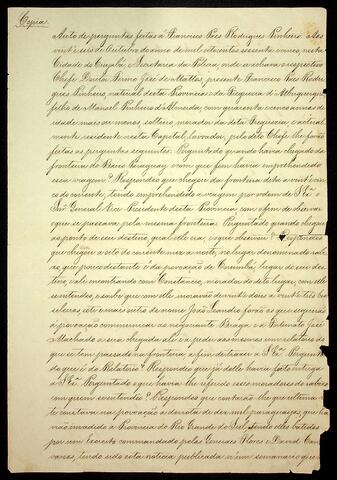 Copia
Auto de perguntas feitas á Francisco Paes Rodrigues Pinheiro. Aos
vinte seis de Outubro do anno de mil oitocentos sessenta e nesta
Cidade de Cuyabá, Secretaria da Policia, onde se achava o respectivo
Chefe Doutor Firmo José de Mattos, presente Francisco Paes Rod
rigues Pinheiro, natural desta Provincia e da Freguesia d'Albuquerque
filho de Manoel Pinheiro d'Almeida, com quarenta e annos de
idade mais ou menos, solteiro, morador da dita Freguesia, e actual
mente residente nesta Capital, lavrador, pelo dito Chefe lhe forão
feitas as perguntas seguintes: Perguntado quando havia chegado da
fronteira do Baixo Paraguay e com que fim havia emprehendido
essa viagem? Respondeo que chegou da fronteira dita a vinte
do corrente, tendo emprehendido a viagem por ordem de S. Exa. o
Snr. General Vice Presidente desta Provincia com o fim de observar
o que se passava pela mesma fronteira. Perguntado quando chegou
ao ponto de seu destino, qual elle era, e o que observou? Respondeo
que chegou a sete do corrente mez a noite, no lugar denominado
que fica distante da povoação de Corumbá, lugar de seu des
tino, e ali encontrando com Constancio, morador desse lugar, com elle
se entendeo, e soube que com elle moravão de vinte dois a vinte e tres
leiros, este e mais um de nome João Leandro forão os que seguirão
á povoação communicar ao negociante Braga e a Fortunato José
Machado a sua chegada ali e a pedir aos mesmos um relatorio do
que se tem passado na fronteira a fim de trazer a S. Exa. Pergunta
do que é do Relatorio? Respondeo que já delle havia feito entrega
a S. Exa. Perguntado o que havia lhe referido esses moradores do
com quem se entendeo? Respondeo que contarão-lhe que ultimamen
te constava na povoação a derrota de dez mil paraguayos que ha
vião invadido a Provincia do Rio Grande do Sul, sendo elles batidos
por um Exercito commandado pelos Generaes Flores e David Cana
varro, tendo sido esta noticia publicada n'um semanario que